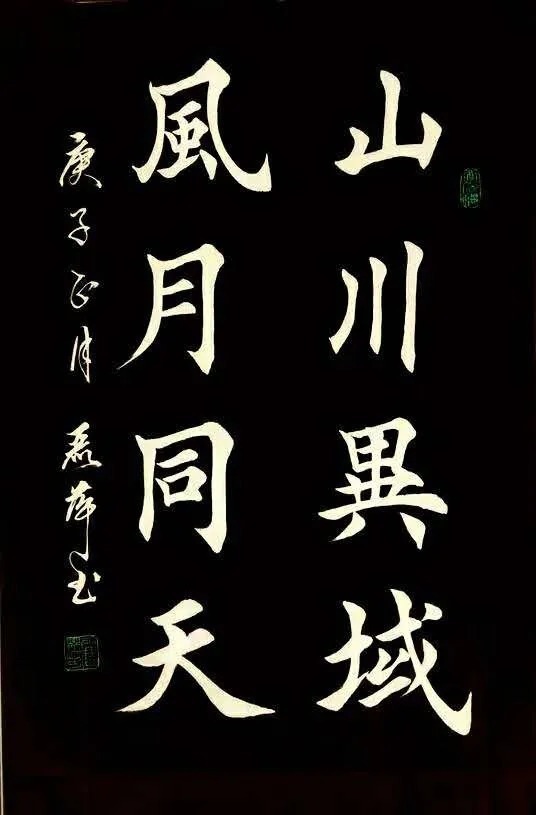 山川異域
風月同天
庚子正月